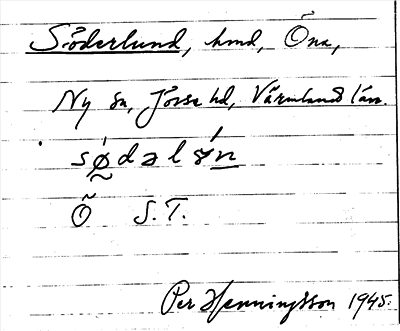 Söderlund, hmd, Õna,
Ny sn, Jösse hd, Värmlands län.
sǿ̰dəlɤ́n
Õ S.T.
Per Henningsson 1945.